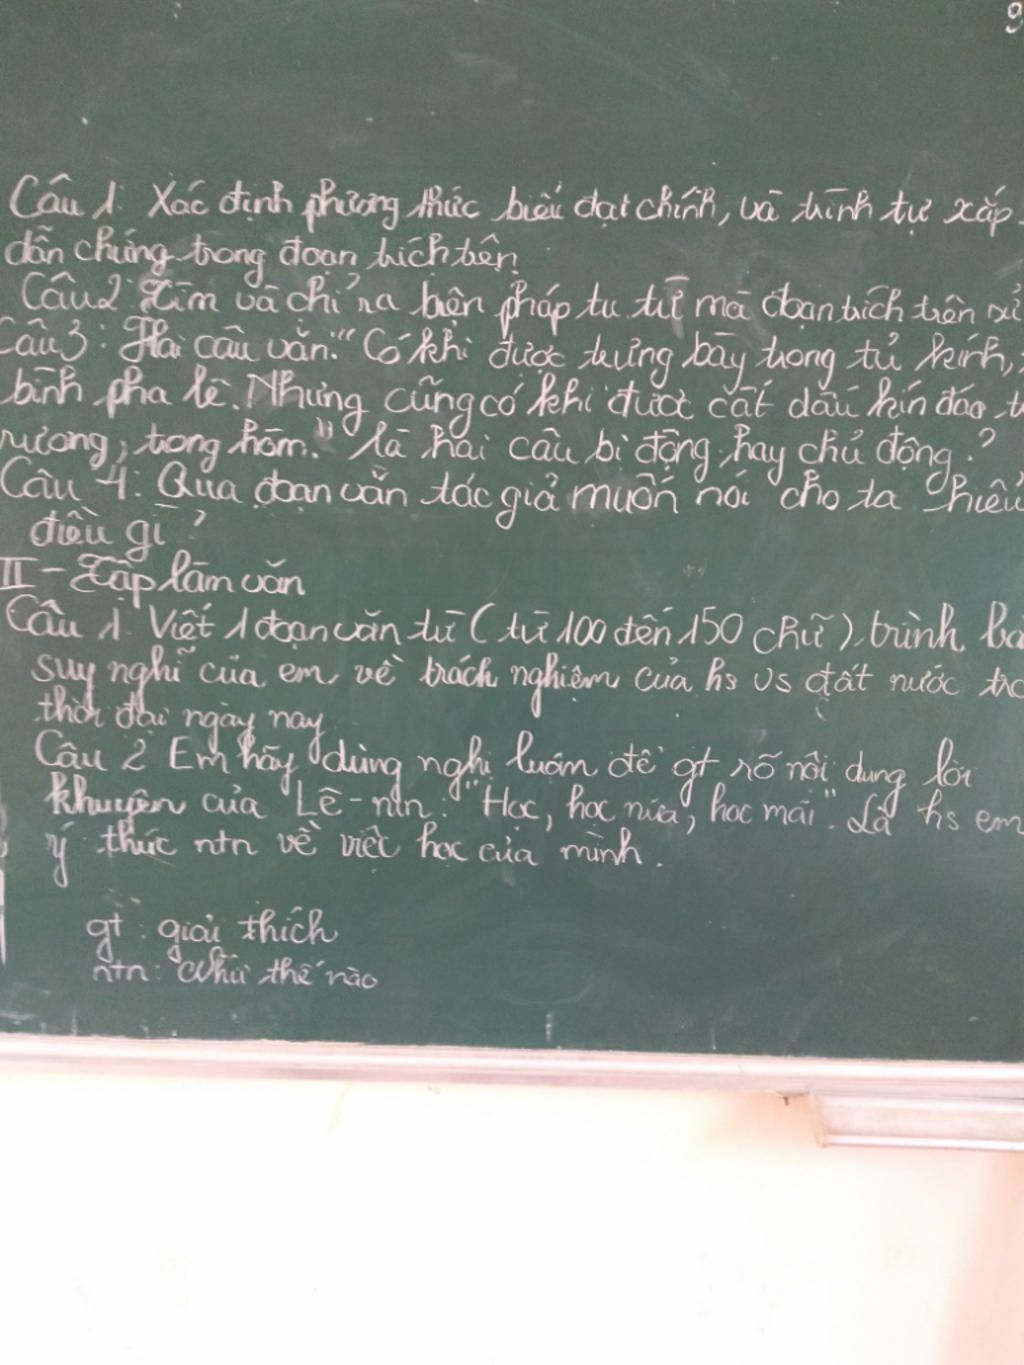 9
Câu 1: Xác định phương thức biểu đạt chính, và trình tự xắp
dẫn chứng trong đoạn trích trên.
Câu 2: Tìm và chỉ ra biện pháp tu từ mà đoạn trích trên sử
Câu 3: Hai câu văn: "Có khi được trưng bày trong tủ kính,
bình pha lê. Nhưng cũng có khi được cất dấu kín đáo
rương, trong hòm." là hai câu bị động hay chủ động?
Câu 4: Qua đoạn văn tác giả muốn nói cho ta hiểu
điều gì?
II - Tập làm văn
Câu 1. Viết 1 đoạn văn từ (từ 100 đến 150 chữ), trình
suy nghĩ của em về trách nghiệm của hs vs đất nước
thời đại ngày nay
Câu 2 Em hãy dùng nghị luận để gt rõ nội dung lời
khuyên của Lê-nin: "Học, học nữa, học mãi". Là hs em
ý thức ntn về việc học của mình.
gt: giải thích
ntn: như thế nào